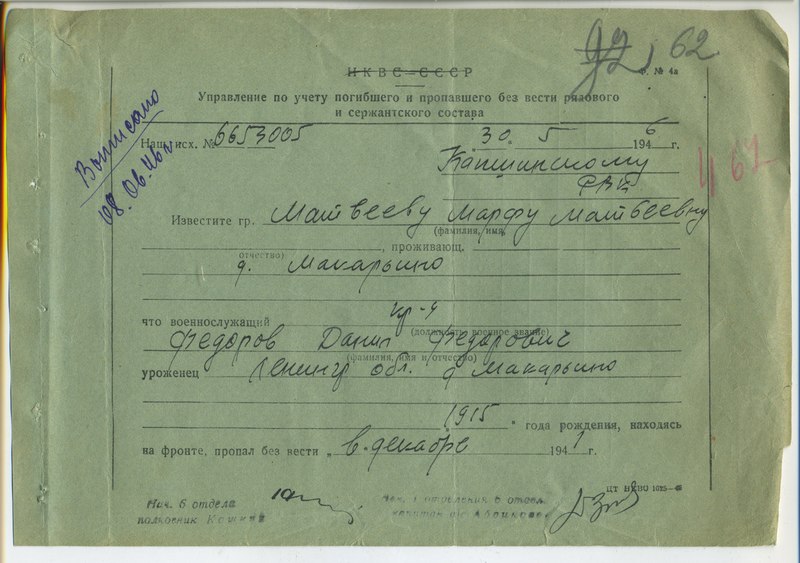 92, 62
НКВС—СССР
Ф. № 4а
Управление по учету погибшего и пропавшего без вести рядового
и сержантского состава
Выписано
08.
Наш исх. № 6653005
30. 5 1946 г.
Капшинскому
РВК
462
Известите гр. Матвееву Марфу Матвеевну
(фамилия, имя,
, проживающ.
отчество)
д. Макарьино
что военнослужащий кр-ц
(должность военное звание)
Федоров Данил Федорович
(фамилия, имя и отчество)
уроженец Ленингр обл. д Макарьино
1915 года рождения, находясь
на фронте, пропал без вести „ в декабре 1941 г.
ЦТ НКВО
Нач. 6 отдела
полковник
Нач. 1 отделения 6 отдел.
капитан